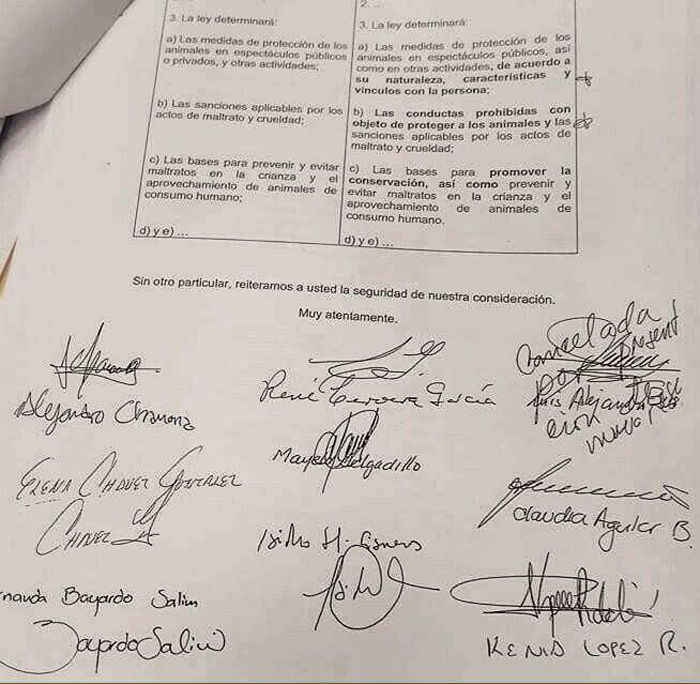 2. ...
3. La ley determinará:
a) Las medidas de protección de los
animales en espectáculos públicos
o privados, y otras actividades;
b) Las sanciones aplicables por los
actos de maltrato y crueldad;
c) Las bases para prevenir y evitar
maltratos en la crianza y el
aprovechamiento de animales de
consumo humano;
d) y e) ...
3. La ley determinará:
a) Las medidas de protección de los
animales en espectáculos públicos, así
como en otras actividades, de acuerdo a
su naturaleza, características y
vínculos con la persona;
b) Las conductas prohibidas con
objeto de proteger a los animales y las
sanciones aplicables por los actos de
maltrato y crueldad;
c) Las bases para promover la
conservación, así como prevenir y
evitar maltratos en la crianza y el
aprovechamiento de animales de
consumo humano.
d) y e) ...
Sin otro particular, reiteramos a usted la seguridad de nuestra consideración.
Muy atentamente.
Alejandro Chanona
René Cervera García
Cancelada
por
Luis Alejandro
nueva
ELENA CHAVEZ GONZALEZ
CHAVEZ
Mayela Delgadillo
Claudia Aguilar B.
Isidro H. Cisneros
Bayardo Salim
Bayardo Salim
KENIA LOPEZ R.